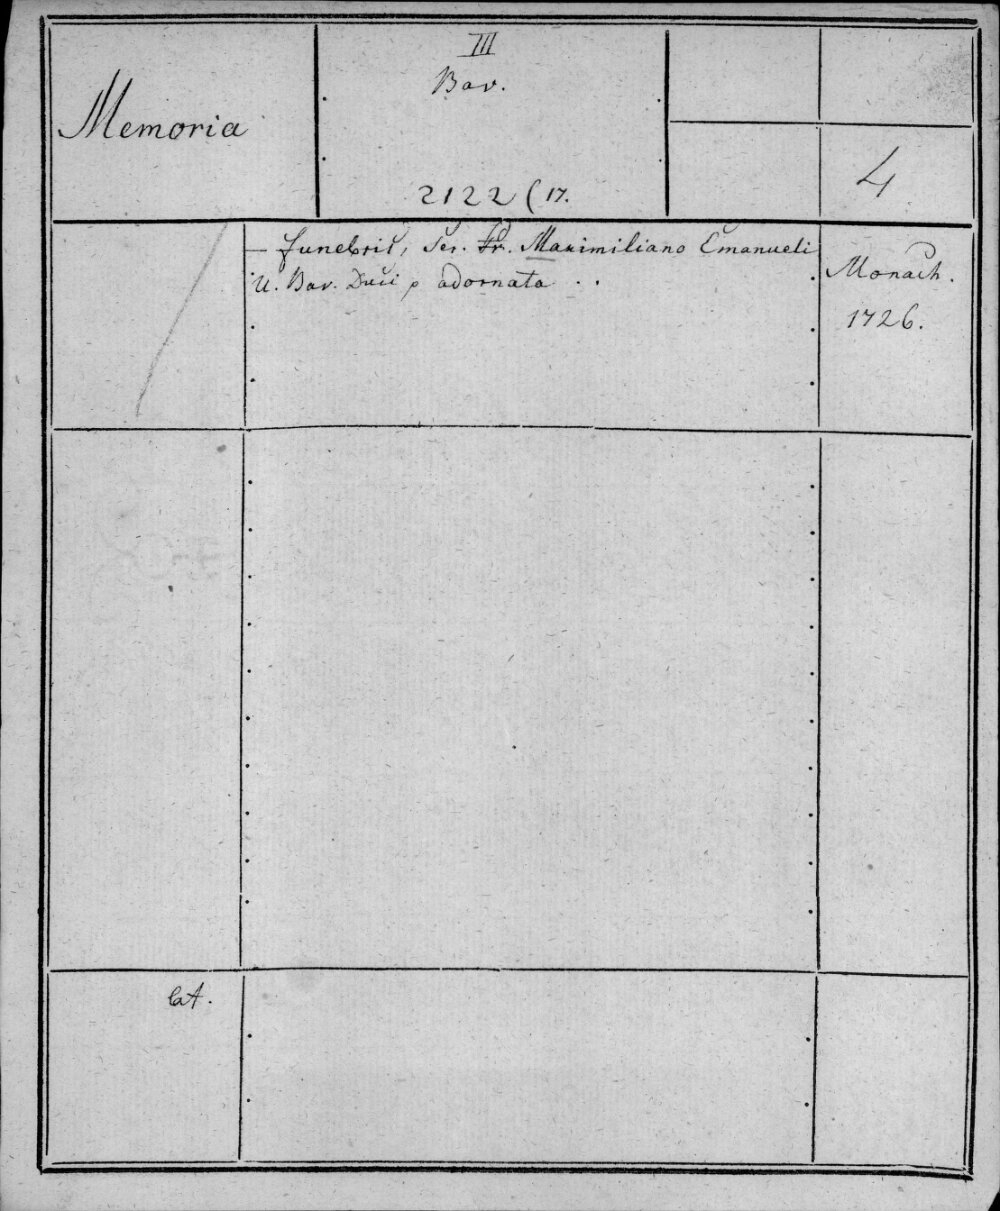 Memoria
III
Bav.
2122 (17.
4
— funebris, Ser. Pr. Maximiliano Emanueli
U. Bav. Duci adornata . .
Monach.
1726.
lat.